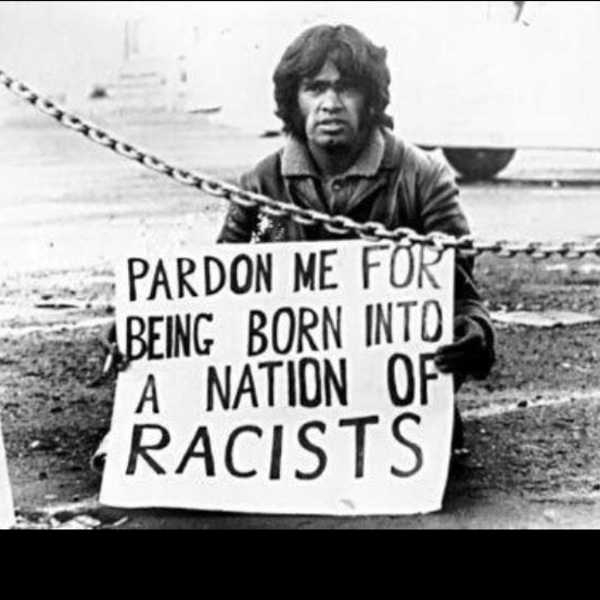 PARDON ME FOR
BEING BORN INTO
A NATION OF
RACISTS